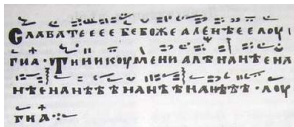 СЛАВАТЕЕЕЕБЕБОЖЕАЛЕНѢЕЕЛОУІ
ГИА · ТИНИКОУМЕНИАЛѢНАНѢЕНА
НѢЕНАНѢѢНАНѢНАНѢѢ · ЛОУ
ГИА ⁘